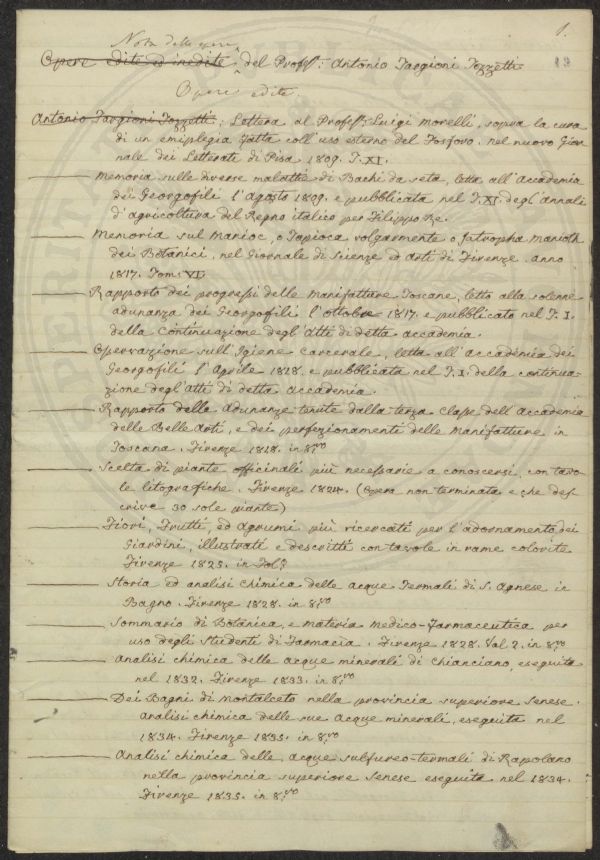 1.
19
Nota delle opere
Opere edite ed inedite del Profs.: Antonio Targioni Tozzetti
Opere edite.
Antonio Targioni Tozzetti. Lettera al Profess: Luigi Morelli, sopra la cura
di un emiplegia fatta coll'uso esterno del Fosforo. nel nuovo Gior
nale dei Letterati di Pisa 1809. T. XI.
Memoria sulle diverse malattie di Bachi da seta, letta all'Accademia
dei Georgofili l'Agosto 1809. e pubblicata nel T. XI. degl'annali
d'agricoltura del Regno italico per Filippo Re.
Memoria sul Manioc, o Tapioca volgarmente o Jatropha Manioth
dei Botanici, nel Giornale di Scienze ed arti di Firenze. anno
1817. Tom: VI.
Rapporto dei progressi delle Manifatture Toscane, letto alla solenne
adunanza dei Georgofili l'ottobre 1817. e pubblicato nel T. I.
della Continuazione degl'Atti di detta accademia.
Osservazione sull'Igiene Carcerale, letta all'Accademia dei
Georgofili l'Aprile 1818. e pubblicata nel T. I. della continua-
zione degl'Atti di detta Accademia.
Rapporto delle adunanze tenute dalla terza classe dell'Accademia
delle Belle Arti, e dei perfezionamenti delle Manifatture in
Toscana. Firenze 1818. in 8.vo
Scelta di piante officinali più necessarie a conoscersi, con tavo
le litografiche. Firenze 1824. (Opera non terminata e che des
crive 30 sole piante)
Fiori, Frutti, ed agrumi più ricercati per l'adornamento dei
Giardini, illustrati e descritti con tavole in rame colorite
Firenze 1825. in Fol:
Storia ed analisi Chimica delle acque Termali di S. Agnese in
Bagno. Firenze 1828. in 8.vo
Sommario di Botanica, e materia medico-farmaceutica per
uso degli Studenti di Farmacia. Firenze 1828. Vol 2. in 8.vo
Analisi chimica delle acque minerali di Chianciano, eseguita
nel 1832. Firenze 1833. in 8.vo
Dei Bagni di Montalceto nella provincia superiore Senese.
analisi chimica delle sue Acque minerali, eseguita nel
1834. Firenze 1835. in 8.vo
Analisi chimica delle acque sulfureo-termali di Rapolano
nella provincia superiore Senese eseguita nel 1834.
Firenze 1835. in 8.vo